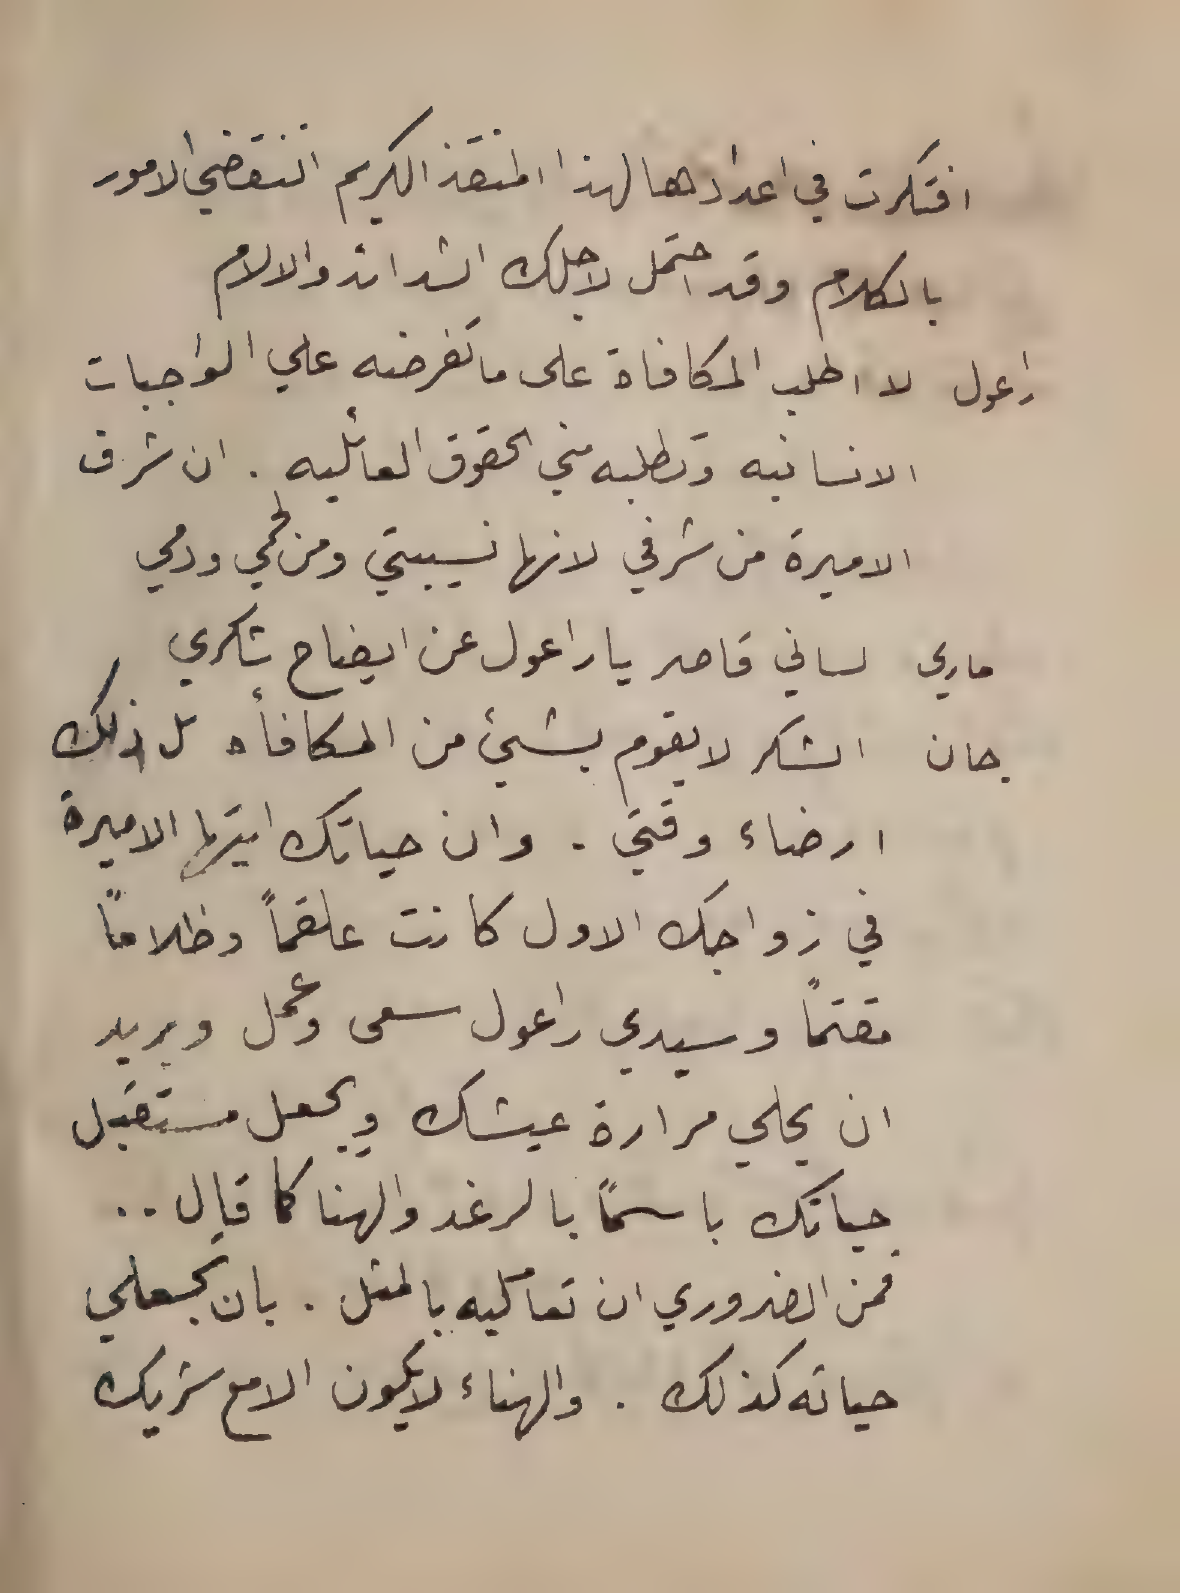 افتكرت في اعدادها لهذا المنقذ الكريم اتنقضي الامور
بالكلام وقد احتمل لاجلك الشدائد والالام
راعول لا اطلب المكافاة على ما تفرضه علي الواجبات
الانسانيه وتطلبه مني الحقوق العائليه . ان شرف
الاميرة من شرفي لانها نسيبتي ومن لحمي ودمي
ماري لساني قاصر يا راعول عن ايضاح شكري
جان الشكر لا يقوم بشيئ من المكافأه بل ذلك
ارضاء وقتي . وان حياتك ايتها الاميرة
في زواجك الاول كانت علقماً وظلاماً
مقتماً وسيدي راعول سعى وعمل ويريد
ان يحلي مرارة عيشك ويجعل مستقبل
حياتك باسماً بالرغد والهنا كما قال ..
فمن الضروري ان تعامليه بالمثل . بان تجعلي
حياته كذلك . والهناء لا يكون الا مع شريك